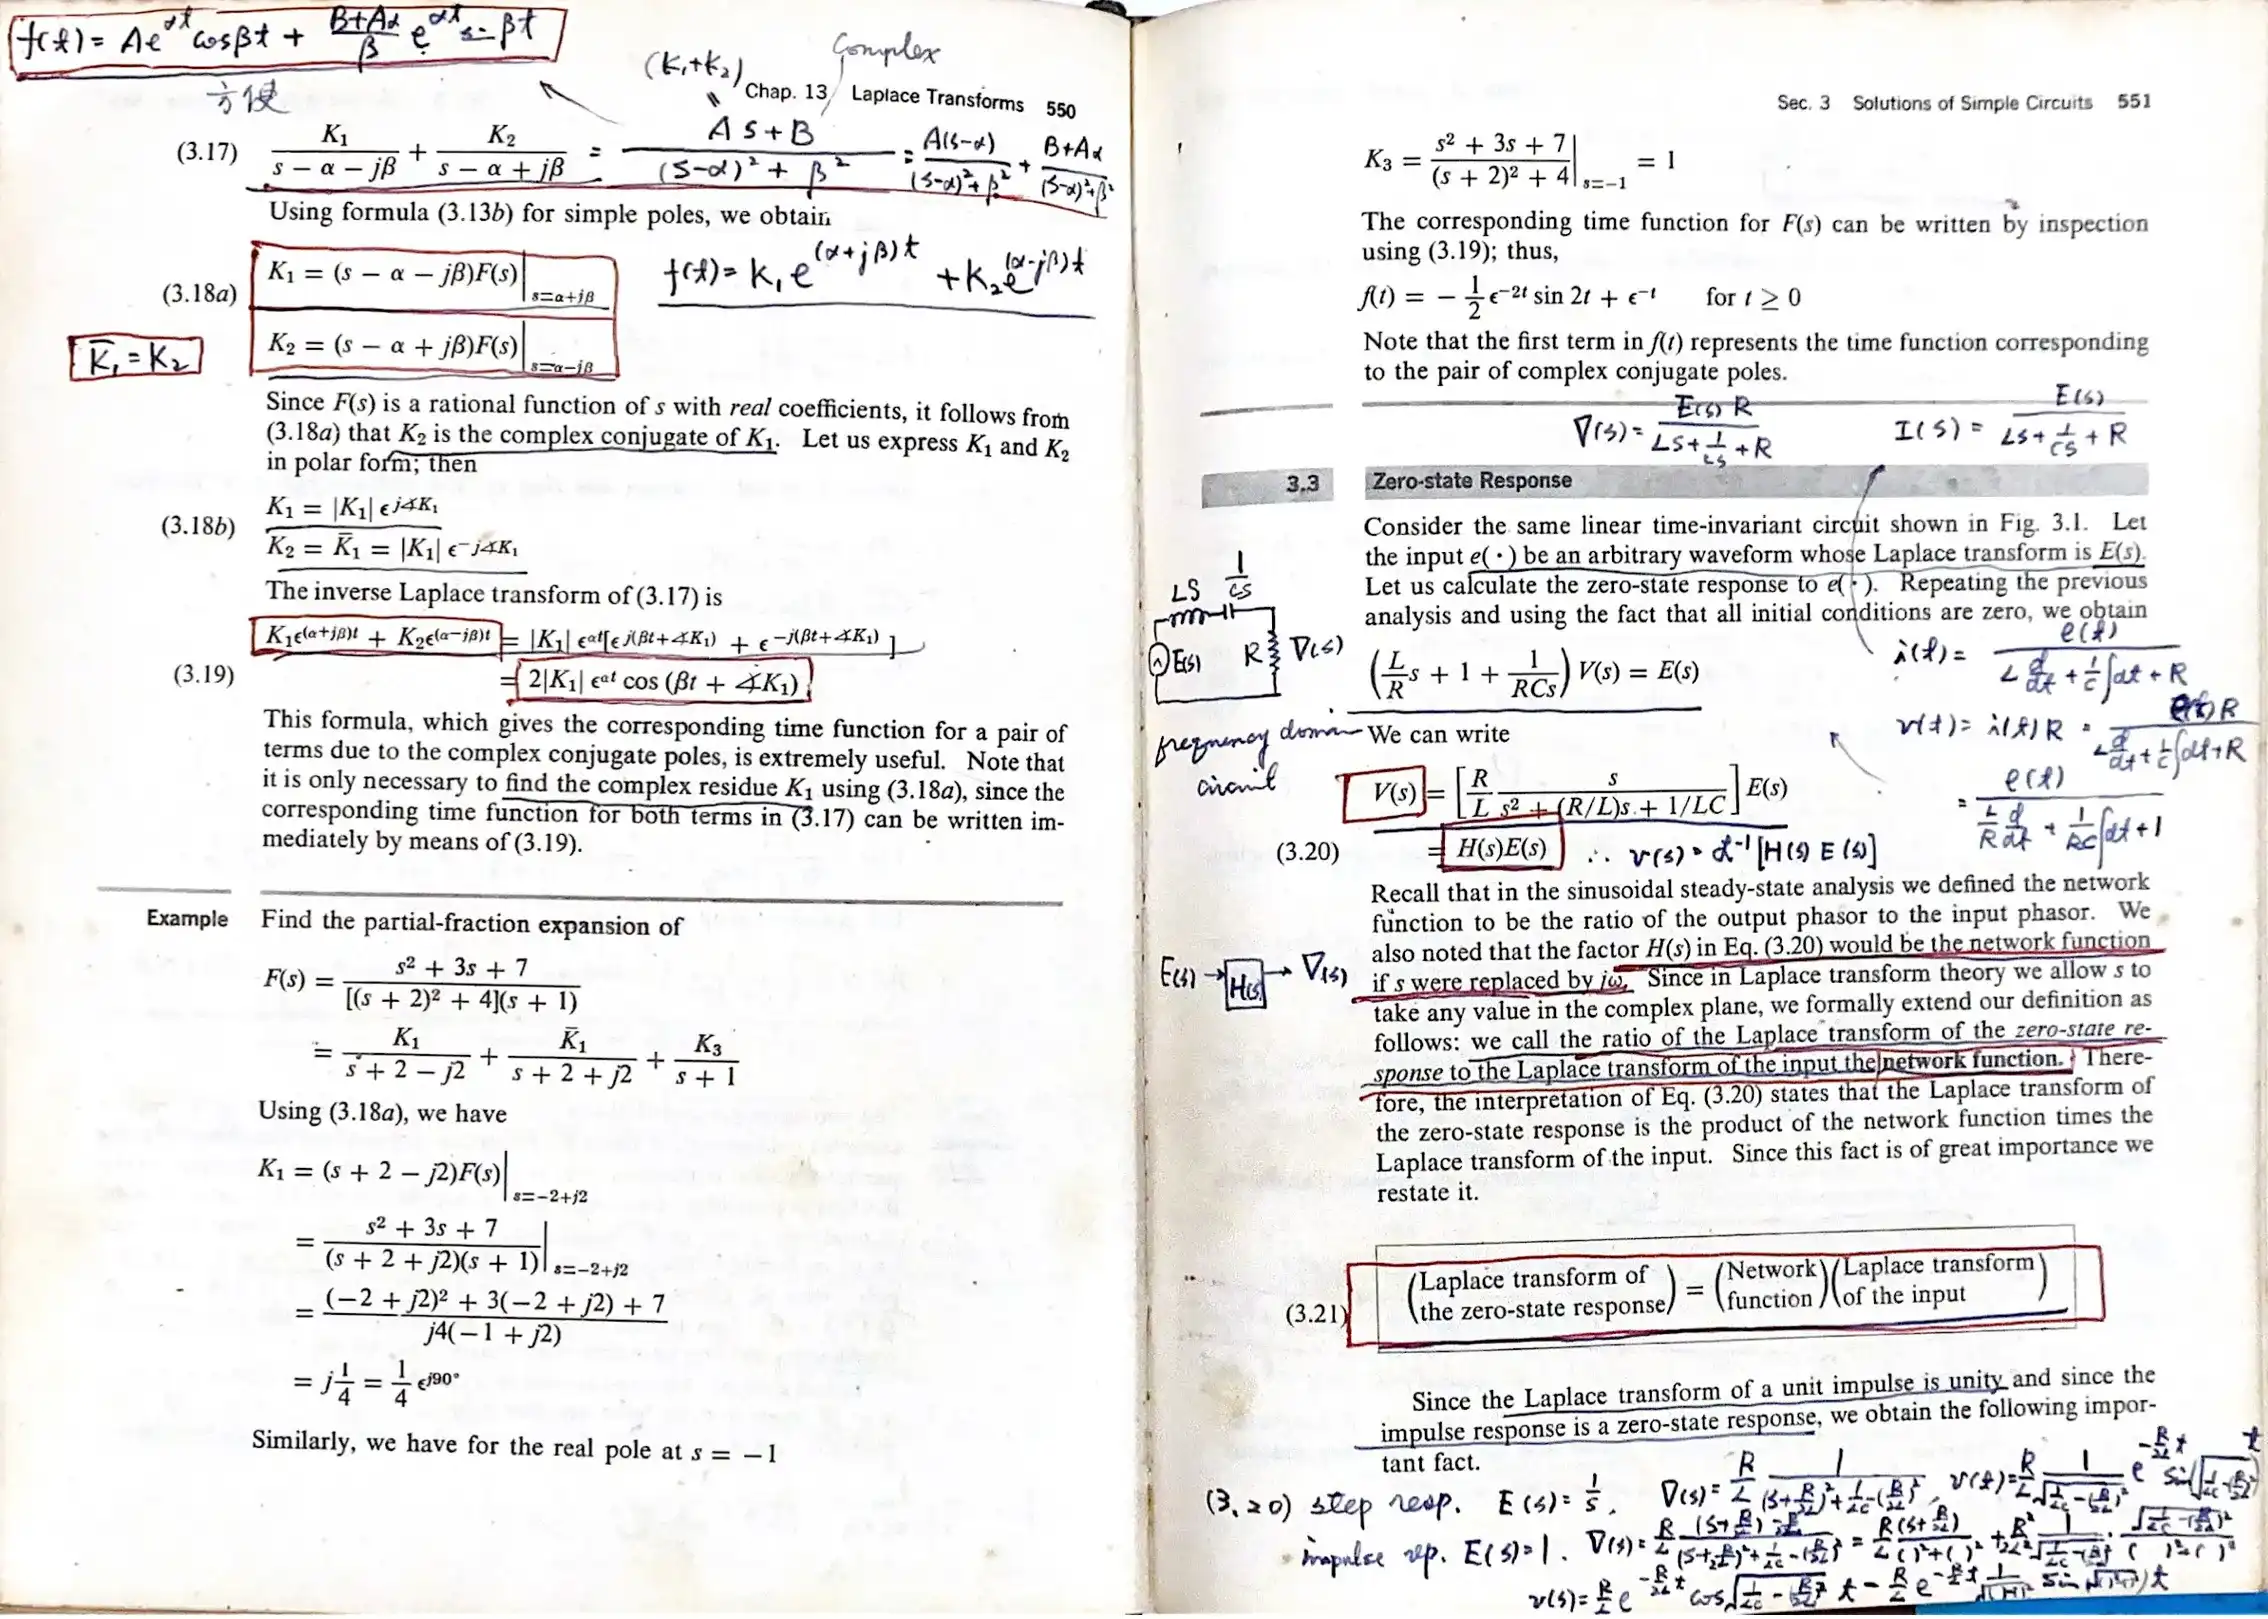 f(t) = Ae^{αt} cosβt + \frac{B+Aα}{β} e^{αt} sin βt
方便
(K₁+K₂) Complex
Chap. 13 Laplace Transforms 550
(3.17) \frac{K₁}{s − α − jβ} + \frac{K₂}{s − α + jβ} = \frac{As+B}{(s-α)²+β²} = \frac{A(s-α)}{(s-α)²+β²} + \frac{B+Aα}{(s-α)²+β²}
Using formula (3.13b) for simple poles, we obtain
(3.18a) K₁ = (s − α − jβ)F(s)|_{s=α+jβ}
f(t) = K₁e^{(α+jβ)t} + K₂e^{(α-jβ)t}
K₂ = (s − α + jβ)F(s)|_{s=α−jβ}
K̄₁ = K₂
Since F(s) is a rational function of s with real coefficients, it follows from
(3.18a) that K₂ is the complex conjugate of K₁. Let us express K₁ and K₂
in polar form; then
(3.18b) K₁ = |K₁| ϵ^{j∡K₁}
K₂ = K̄₁ = |K₁| ϵ^{−j∡K₁}
The inverse Laplace transform of (3.17) is
K₁ϵ^{(α+jβ)t} + K₂ϵ^{(α−jβ)t} = |K₁| ϵ^{αt}[ϵ^{j(βt+∡K₁)} + ϵ^{−j(βt+∡K₁)}]
(3.19) = 2|K₁| ϵ^{αt} cos (βt + ∡K₁)
This formula, which gives the corresponding time function for a pair of
terms due to the complex conjugate poles, is extremely useful. Note that
it is only necessary to find the complex residue K₁ using (3.18a), since the
corresponding time function for both terms in (3.17) can be written im-
mediately by means of (3.19).
Example Find the partial-fraction expansion of
F(s) = \frac{s² + 3s + 7}{[(s + 2)² + 4](s + 1)}
= \frac{K₁}{s + 2 − j2} + \frac{K̄₁}{s + 2 + j2} + \frac{K₃}{s + 1}
Using (3.18a), we have
K₁ = (s + 2 − j2)F(s)|_{s=−2+j2}
= \frac{s² + 3s + 7}{(s + 2 + j2)(s + 1)}|_{s=−2+j2}
= \frac{(−2 + j2)² + 3(−2 + j2) + 7}{j4(−1 + j2)}
= j\frac{1}{4} = \frac{1}{4} ϵ^{j90°}
Similarly, we have for the real pole at s = −1
Sec. 3 Solutions of Simple Circuits 551
K₃ = \frac{s² + 3s + 7}{(s + 2)² + 4}|_{s=−1} = 1
The corresponding time function for F(s) can be written by inspection
using (3.19); thus,
f(t) = −\frac{1}{2}ϵ^{−2t} sin 2t + ϵ^{−t} for t ≥ 0
Note that the first term in f(t) represents the time function corresponding
to the pair of complex conjugate poles.
V(s) = \frac{E(s) R}{Ls+\frac{1}{cs}+R} I(s) = \frac{E(s)}{Ls+\frac{1}{cs}+R}
3.3 Zero-state Response
Consider the same linear time-invariant circuit shown in Fig. 3.1. Let
the input e(·) be an arbitrary waveform whose Laplace transform is E(s).
Let us calculate the zero-state response to e(·). Repeating the previous
analysis and using the fact that all initial conditions are zero, we obtain
LS \frac{1}{cs}
E(s) R V(s)
(\frac{L}{R}s + 1 + \frac{1}{RCs}) V(s) = E(s)
i(t) = \frac{e(t)}{L\frac{d}{dt}+\frac{1}{c}∫dt+R}
frequency domain
circuit
We can write
v(t) = i(t)R = \frac{e(t)R}{L\frac{d}{dt}+\frac{1}{c}∫dt+R}
= \frac{e(t)}{\frac{L}{R}\frac{d}{dt}+\frac{1}{RC}∫dt+1}
V(s) = [\frac{R}{L} \frac{s}{s² + (R/L)s + 1/LC}] E(s)
(3.20) = H(s)E(s) ∴ v(s) = ℒ⁻¹[H(s) E(s)]
Recall that in the sinusoidal steady-state analysis we defined the network
function to be the ratio of the output phasor to the input phasor. We
also noted that the factor H(s) in Eq. (3.20) would be the network function
E(s) → H(s) → V(s)
if s were replaced by jω. Since in Laplace transform theory we allow s to
take any value in the complex plane, we formally extend our definition as
follows: we call the ratio of the Laplace transform of the zero-state re-
sponse to the Laplace transform of the input the network function. There-
fore, the interpretation of Eq. (3.20) states that the Laplace transform of
the zero-state response is the product of the network function times the
Laplace transform of the input. Since this fact is of great importance we
restate it.
(Laplace transform of) = (Network)(Laplace transform)
(3.21) (the zero-state response) (function)(of the input)
Since the Laplace transform of a unit impulse is unity and since the
impulse response is a zero-state response, we obtain the following impor-
tant fact.
(3.20) step resp. E(s) = \frac{1}{s}, V(s) = \frac{R}{L} \frac{1}{(s+\frac{R}{2L})²+\frac{1}{LC}-(\frac{R}{2L})²}, v(t) = \frac{R}{L} \frac{1}{\sqrt{\frac{1}{LC}-(\frac{R}{2L})²}} e^{-\frac{R}{2L}t} sin
impulse rep. E(s) = 1. V(s) =
v(s) = \frac{R}{L} e^{-\frac{R}{2L}t} cos